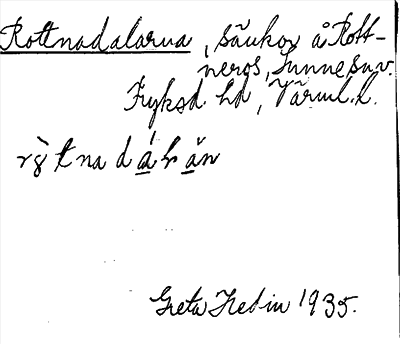 Rottnadalarna, sänkor å Rott-
neros, Sunne sn.
Fryksd. hd, Värml. l.
Greta Hedin 1935.